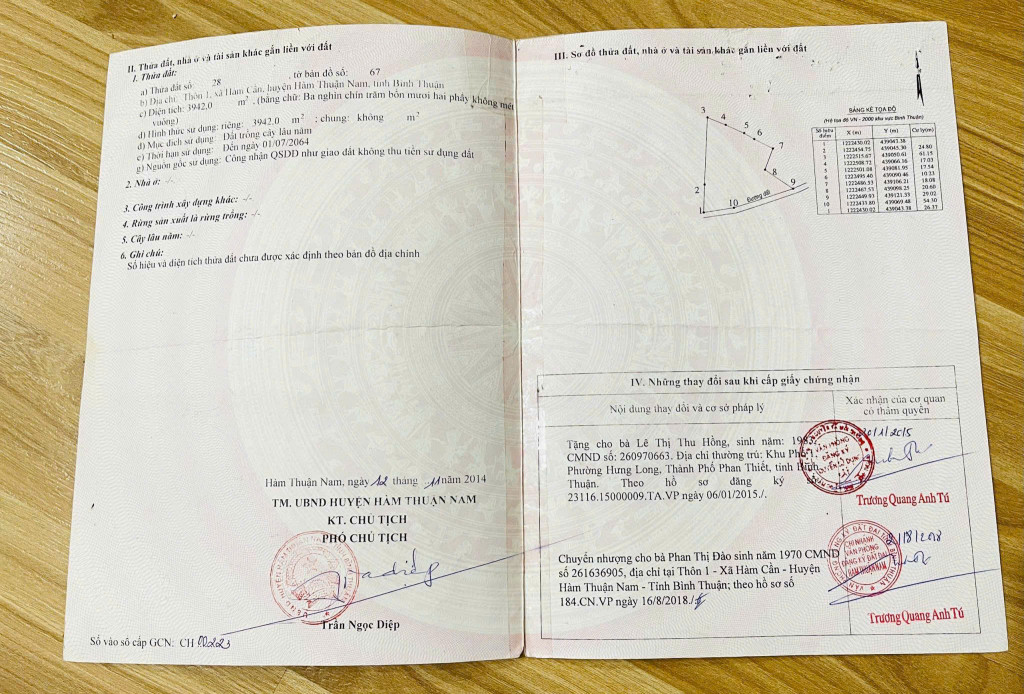 II. Thửa đất, nhà ở và tài sản khác gắn liền với đất
1. Thửa đất:
a) Thửa đất số: 28 , tờ bản đồ số: 67
b) Địa chỉ: Thôn 1, xã Hàm Cần, huyện Hàm Thuận Nam, tỉnh Bình Thuận
c) Diện tích: 3942,0 m², (bằng chữ: Ba nghìn chín trăm bốn mươi hai phẩy không mét
vuông)
d) Hình thức sử dụng: riêng: 3942,0 m² ; chung: không m²
đ) Mục đích sử dụng: Đất trồng cây lâu năm
e) Thời hạn sử dụng: Đến ngày 01/07/2064
g) Nguồn gốc sử dụng: Công nhận QSDĐ như giao đất không thu tiền sử dụng đất
2. Nhà ở: -/-
3. Công trình xây dựng khác: -/-
4. Rừng sản xuất là rừng trồng: -/-
5. Cây lâu năm: -/-
6. Ghi chú:
Số hiệu và diện tích thửa đất chưa được xác định theo bản đồ địa chính
Hàm Thuận Nam, ngày 12 tháng 11 năm 2014
TM. UBND HUYỆN HÀM THUẬN NAM
KT. CHỦ TỊCH
PHÓ CHỦ TỊCH
Trần Ngọc Diệp
Số vào sổ cấp GCN: CH 002223
III. Sơ đồ thửa đất, nhà ở và tài sản khác gắn liền với đất
3
4
5
6
7
8
9
2
10
Đường đất
BẢNG KÊ TỌA ĐỘ
(Hệ tọa độ VN - 2000 khu vực Bình Thuận)
Số hiệu điểm X (m) Y (m) Cự ly(m)
1 1222430.02 439043.38
24.80
2 1222454.75 439045.30
61.15
3 1222515.87
17.03
4 1222508.72 439066.36
17.54
5 1222501.08 439081.95
10.23
6 1222495.40 439090.46
18.08
7 1222486.53 439106.21
20.60
8 1222467.53 439098.25
29.02
9 1222449.93 439121.33
54.30
10 1222433.80 439069.48
26.37
1 1222430.02 439043.38
IV. Những thay đổi sau khi cấp giấy chứng nhận
Nội dung thay đổi và cơ sở pháp lý
Xác nhận của cơ quan
có thẩm quyền
Tặng cho bà Lê Thị Thu Hồng, sinh năm: 1983,
CMND số: 260970663. Địa chỉ thường trú: Khu Phố 1,
Phường Hưng Long, Thành Phố Phan Thiết, tỉnh Bình
Thuận. Theo hồ sơ đăng ký số
23116.15000009.TA.VP ngày 06/01/2015./.
VĂN PHÒNG
ĐĂNG KÝ
Trương Quang Anh Tú
Chuyển nhượng cho bà Phan Thị Đào sinh năm 1970 CMND
số 261636905, địa chỉ tại Thôn 1 - Xã Hàm Cần - Huyện
Hàm Thuận Nam - Tỉnh Bình Thuận; theo hồ sơ số
184.CN.VP ngày 16/8/2018./
CHI NHÁNH
VĂN PHÒNG
ĐĂNG KÝ ĐẤT ĐAI
HÀM THUẬN NAM
Trương Quang Anh Tú